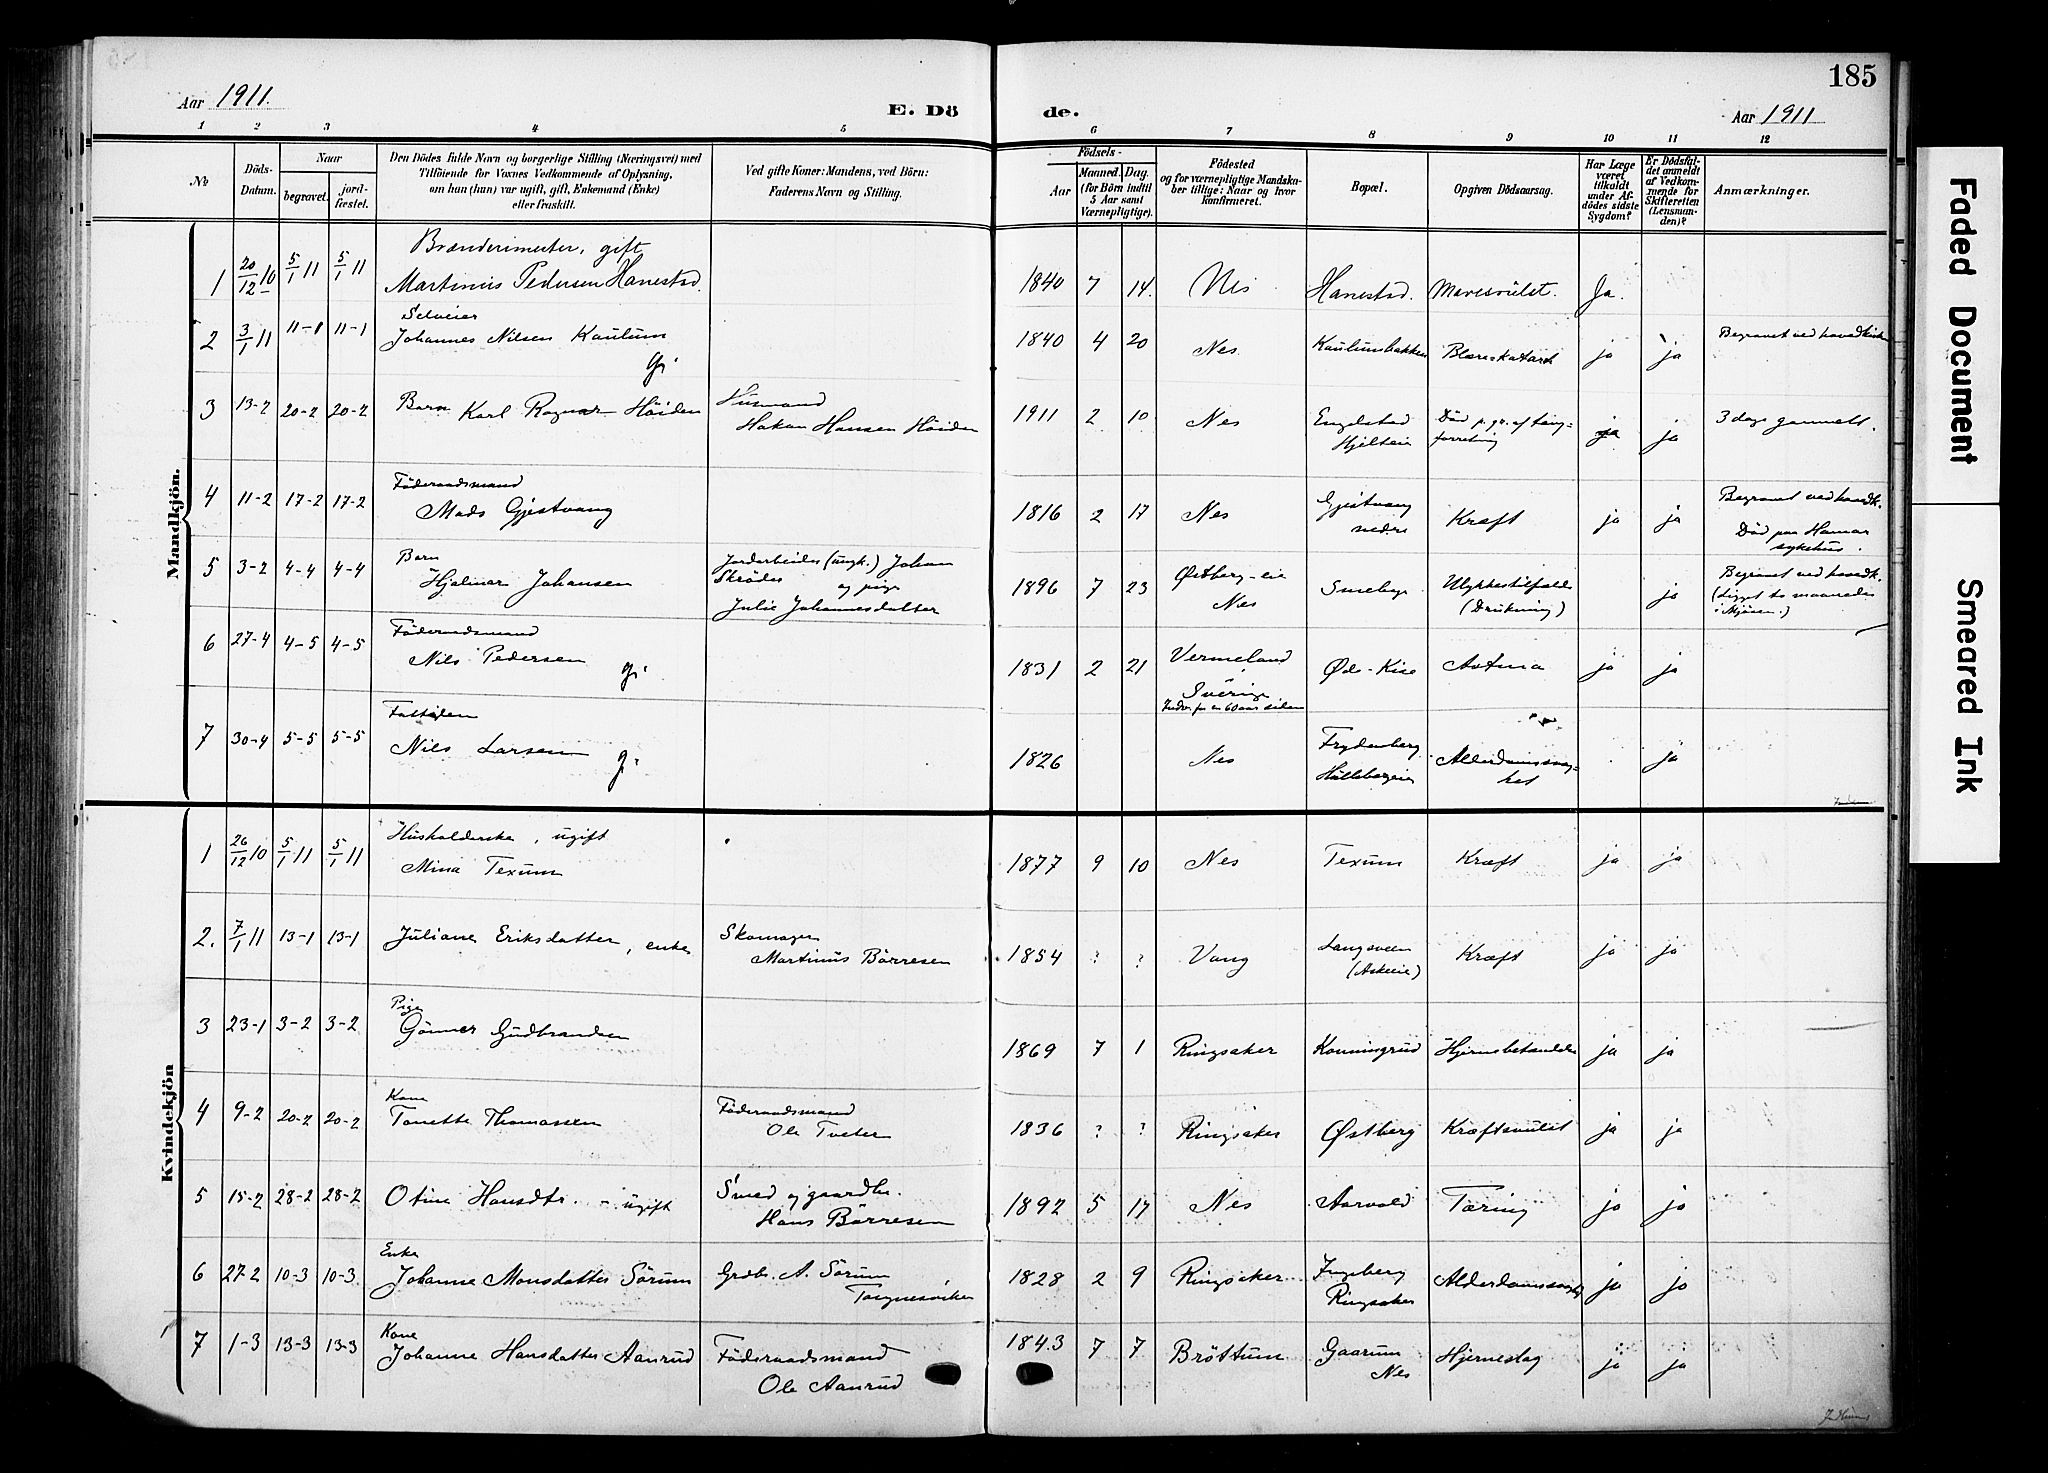 185
Aar 1911.
E. Dö
de.
Aar 1911
1 2 3 4 5 6 7 8 9 10 11 12
№
Döds-
Datum.
Naar
begravet.
jord-
fæstet.
Den Dödes fulde Navn og borgerlige Stilling (Næringsvei) med
Tilföiende for Voxnes Vedkommende af Oplysning,
om han (hun) var ugift, gift, Enkemand (Enke)
eller fraskilt.
Ved gifte Koner: Mandens, ved Börn:
Faderens Navn og Stilling.
Födsels-
Aar
Maaned. Dag.
(for Börn indtil
5 Aar samt
Værnepligtige).
Födested
og for værnepligtige Mandska-
ber tillige: Naar og hvor
konfirmeret.
Bopæl.
Opgiven Dödsaarsag.
Har Læge
været
tilkaldt
under Af-
dödes sidste
Sygdom?
Er Dödsfal-
det anmeldt
af Vedkom-
mende for
Skifteretten
(Lensman-
den)?
Anmærkninger.
Mandkjön.
Brænderimester, gift
1 20/12 10 5/1 11 5/1 11 Martinus Pedersen Hanestad. 1840 7 14. Nes Hanestad. Mavesvulst. Ja.
Selveier
2 3/1 11 11-1 11-1 Johannes Nilsen Kaulum 1840 4 20 Nes. Kaulumbakken Blærekatarrh ja ja Begravet ved hovedkirken
G.
3 13-2 20-2 20-2 Barn Karl Ragnar Höiden Husmand
Hakan Hansen Höiden 1911 2 10 Nes Engelstad
Hjelteie Död p. gr. af tang-
forretning ja ja 3 dage gammelt.
Föderaadsmand
4 11-2 17-2 17-2 Mads Gjestvang 1816 2 17 Nes Gjestvang
nedre Kræft ja ja Begravet ved hovedk.
Död paa Hamar
sykehus.
Barn
5 3-2 4-4 4-4 Hjalmar Johansen Jordarbeider (ungk.) Johan
Skröder og pige
Julie Johannesdatter 1896 7 23 Østberg-eie
Nes Smeby Ulykkestilfælde
(Drukning) ja Begravet ved hovedk.
(Ligget to maaneder
i Mjösen.)
Föderaadsmand
6 27-4 4-5 4-5 Nils Pedersen G. 1831 2 21 Vermeland
Sverige.
60 aar siden Øde-Kise Astma ja ja
Fattiglem
7 30-4 5-5 5-5 Nils Larsen g. 1826 Nes Frydenberg
Alderdomssvag-
het ja
Kvindekjön
Husholderske, ugift
1 26/12 10 5/1 11 5/1 11 Mina Texum 1877 9 10 Nes Texum Kræft ja ja
2. 7/1 11 13-1 13-1 Juliane Eriksdatter, enke Skomager
Martinus Börresen 1854 ? ? Vang Langsveen
(Askeeie) Kræft ja ja
Pige
3 23-1 3-2 3-2 Gönner Gudbrandsen 1869 7 1 Ringsaker Konningrud Hjernebetændelse ja ja
Kone
4 9-2 20-2 20-2 Tonette Thomassen Föderaadsmand
Ole Tveter 1836 ? ? Ringsaker Østberg Kræftsvulst ja ja
5 15-2 28-2 28-2 Otine Hansdtr. - ugift Smed og gaardbr.
Hans Börresen 1892 5 17 Nes Aarvold Tæring ja ja
Enke
6 27-2 10-3 10-3 Johanne Monsdatter Sörum Grdbr. A. Sörum
Tangnesviken 1828 2 9 Ringsaker Ingeberg
Ringsaker Alderdomssvagh. ja ja
Kone
7 1-3 13-3 13-3 Johanne Hansdatter Aanrud Föderaadsmand
Ole Aanrud 1843 7 7 Bröttum Gaarum
Nes Hjerneslag ja ja
Faded Document
Smeared Ink